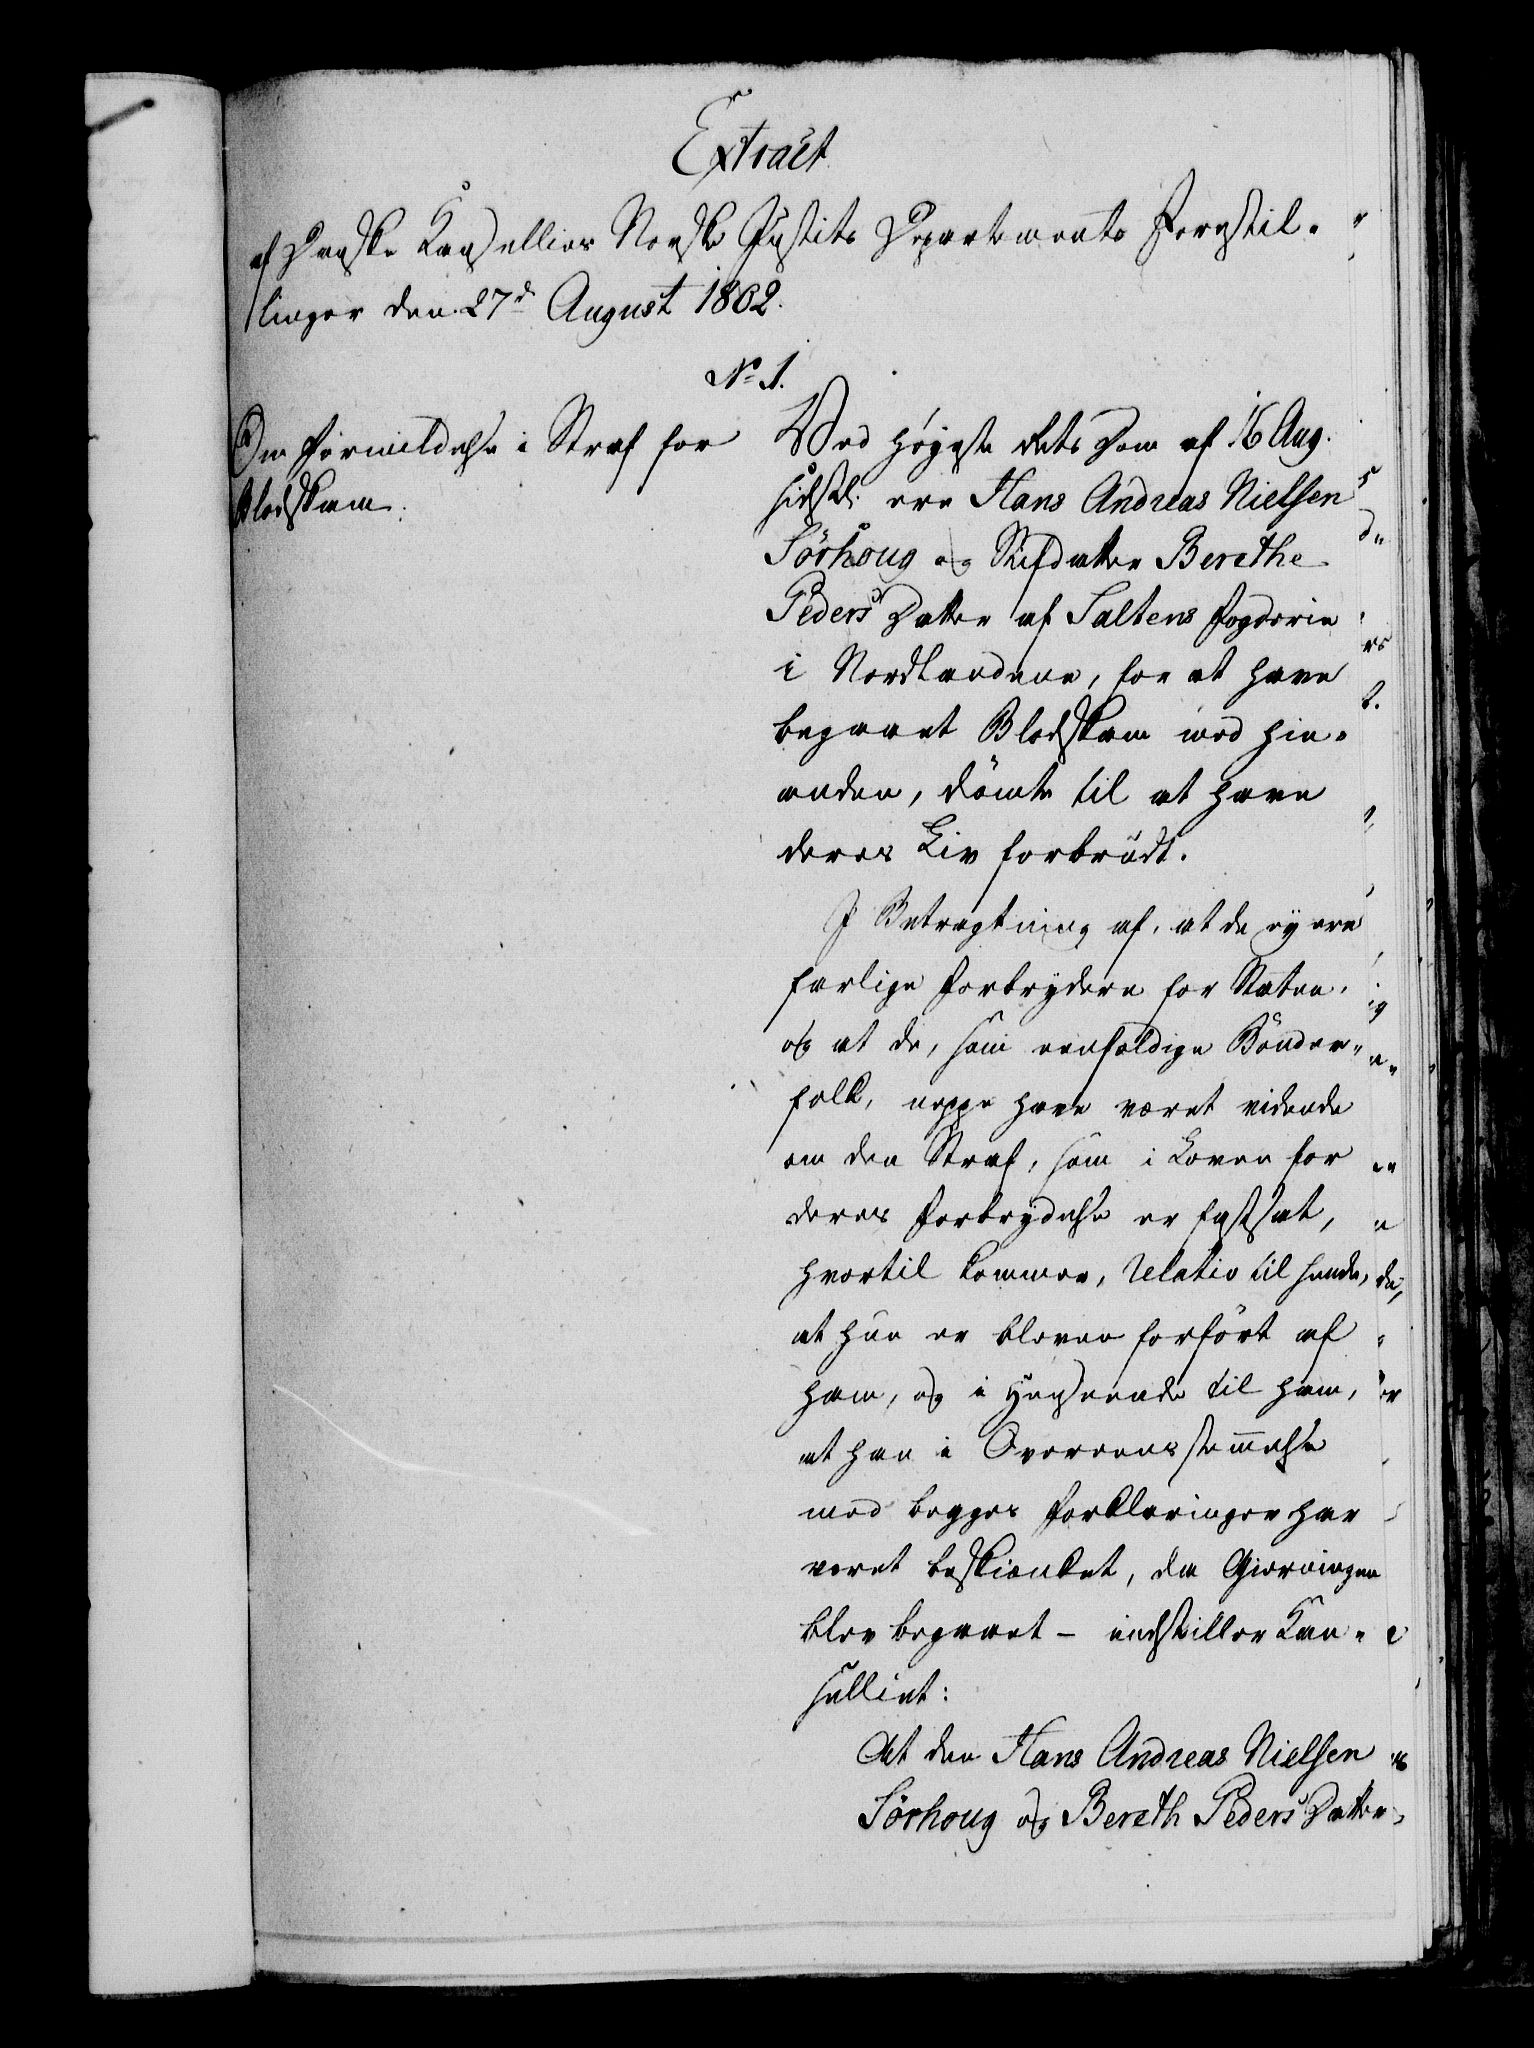 Extract
af Danske Kanselliets Norske Justits Departements Forestil-
linger den 27d August 1802.
No 1.
Om Formildelse i Straf for
Blodskam.
Ved Höyeste Rets Dom af 16 Aug.
sidstl. ere Hans Andreas Nielsen
Sörhoug og Stifdatter Berethe
Peders Datter af Saltens Fogderie
i Nordlandene, for at have
begaaet Blodskam med hin-
anden, dömte til at have
deres Liv forbrudt.
I Betragtning af, at de ey ere
farlige Forbrydere for Staten,
og at de, som eenfoldige Bönder-
folk, neppe have været vidende
om den Straf, som i Loven for
deres Forbrydelse er fastsat,
hvortil kommer, relativ til hende,
at hun er bleven forfört af
ham, og i Henseende til ham,
at han i Overeensstemmelse
med begges Forklaringer har
veret beskienket, da Gierningen
blev begaaet - indstiller Kan-
selliet:
At den Hans Andreas Nielsen
Sörhoug og Bereth Peders Datter,